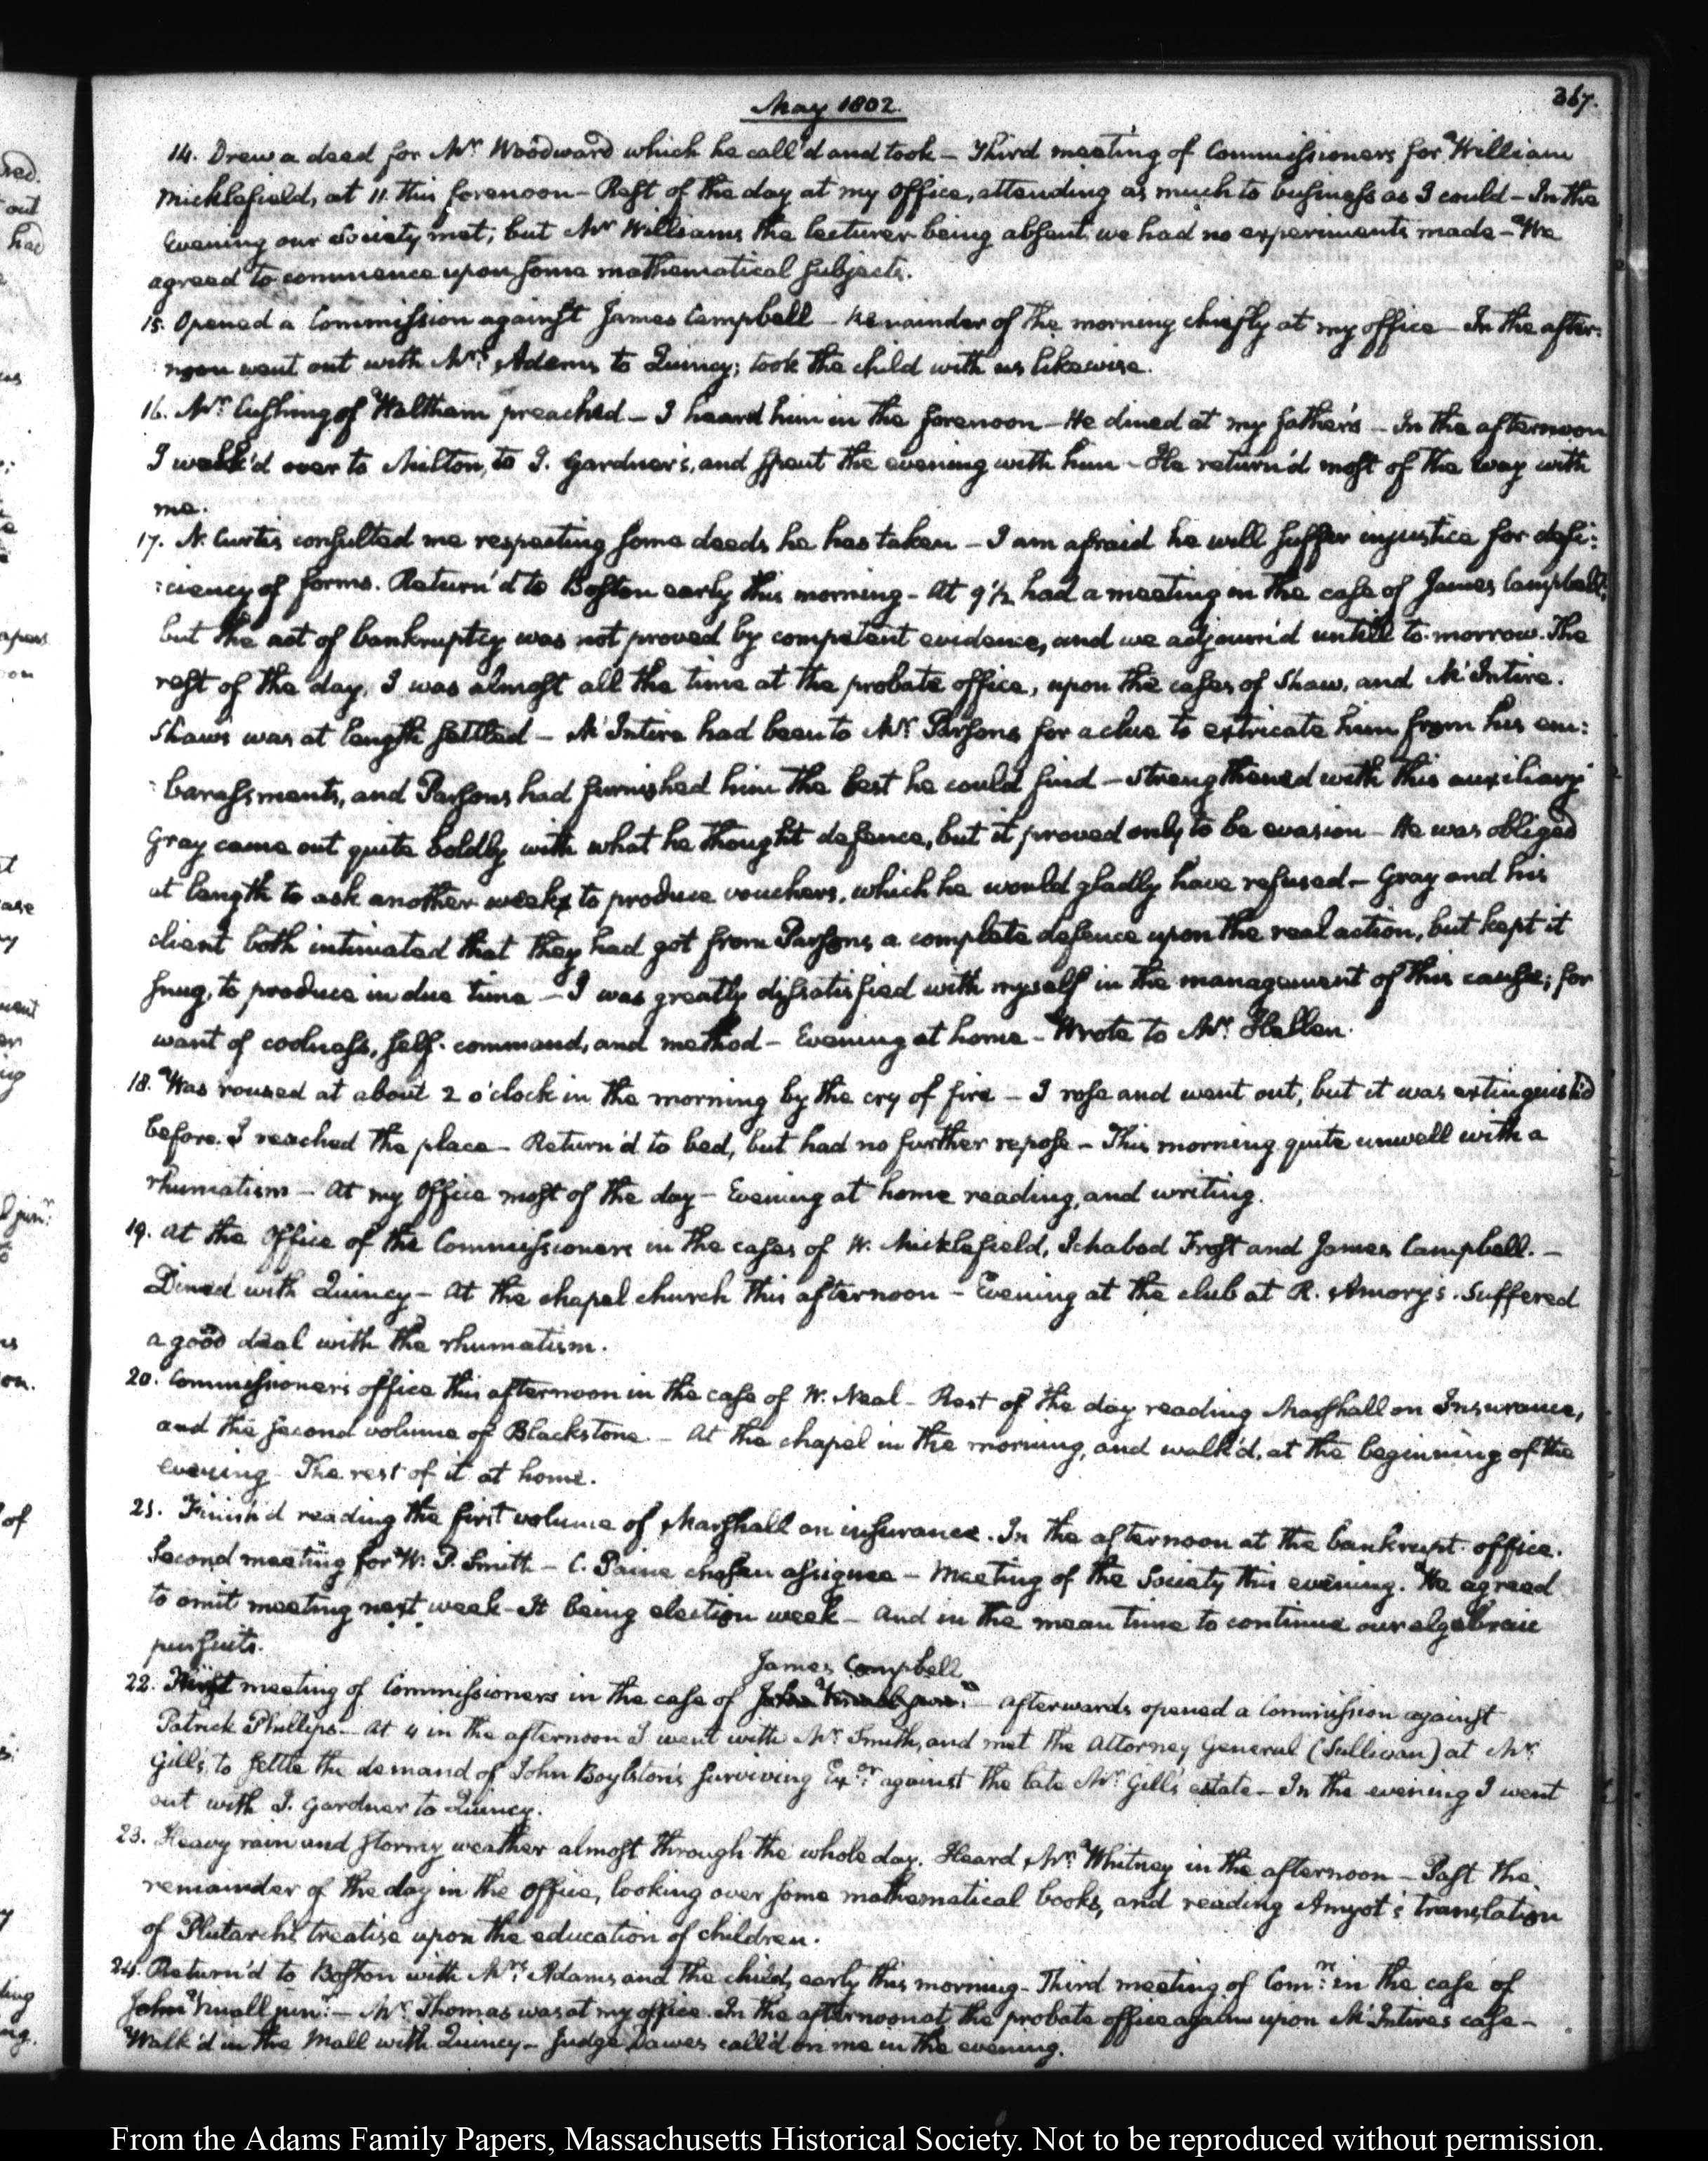 May 1802.
367.
14. Drew a deed for Mr Woodward which he call'd and took — Third meeting of Commissioners for William
Micklefield, at 11 this forenoon — Rest of the day at my office, attending as much to business as I could — In the
Evening our Society met; but Mr Williams the lecturer being absent we had no experiments made — We
agreed to commence upon some mathematical subjects.
15. Opened a Commission against James Campbell — Remainder of the morning chiefly at my office — In the after:
noon went out with Mrs Adams to Quincy; took the child with us likewise.
16. Mr Cushing of Waltham preached — I heard him in the forenoon — He dined at my father's — In the afternoon
I walk'd over to Milton, to J. Gardner's, and spent the evening with him — He return'd most of the way with
me.
17. N. Curtis consulted me respecting some deeds he has taken — I am afraid he will suffer injustice for defi:
:ciency of forms. Return'd to Boston early this morning — At 9 1/2 had a meeting in the case of James Campbell;
but the act of bankruptcy was not proved by competent evidence, and we adjourn'd untill to-morrow. The
rest of the day, I was almost all the time at the probate office, upon the cases of Shaw, and McIntire.
Shaw's was at length settled — McIntire had been to Mr Parsons for a clue to extricate him from his em:
:barassments, and Parsons had furnished him the best he could find — Strengthened with this auxiliary
Gray came out quite boldly with what he thought defence, but it proved only to be evasion — He was obliged
at length to ask another week to produce vouchers, which he would gladly have refused — Gray and his
client both intimated that they had got from Parsons a complete defence upon the real action, but kept it
snug, to produce in due time — I was greatly dissatisfied with myself in the management of this cause; for
want of coolness, self-command, and method — Evening at home — Wrote to Mr Hellen.
18. Was roused at about 2 o'clock in the morning by the cry of fire — I rose and went out, but it was extinguish'd
before I reached the place — Return'd to bed, but had no further repose — This morning quite unwell with a
rhumatism — At my Office most of the day — Evening at home reading, and writing.
19. At the Office of the Commissioners in the cases of W. Micklefield, Ichabod Frost and James Campbell. —
Dined with Quincy — At the chapel church this afternoon — Evening at the club at R. Amory's. Suffered
a good deal with the rhumatism.
20. Commissioner's office this afternoon in the case of W. Neal — Rest of the day reading Marshall on Insurance,
and the second volume of Blackstone — At the chapel in the morning, and walk'd, at the beginning of the
evening — The rest of it at home.
21. Finish'd reading the first volume of Marshall on insurance. In the afternoon at the bankrupt office.
Second meeting for W. P. Smith — C. Paine chosen assignee — Meeting of the Society this evening. We agreed
to omit meeting next week — It being election week — And in the mean time to continue our algebraic
pursuits.
James Campbell
22. First meeting of Commissioners in the case of — Afterwards opened a Commission against
Patrick Phillips — At 4 in the afternoon I went with Mr Smith, and met the Attorney General (Sullivan) at Mr
Gill's, to settle the demand of John Boylston's surviving Exor against the late Mr Gill's estate — In the evening I went
out with J. Gardner to Quincy.
23. Heavy rain and stormy weather almost through the whole day. Heard Mr Whitney in the afternoon — Past the
remainder of the day in the office, looking over some mathematical books, and reading Amyot's translation
of Plutarch's treatise upon the education of children.
24. Return'd to Boston with Mrs Adams and the child, early this morning — Third meeting of Comrs in the case of
John Vinall junr — Mr Thomas was at my office. In the afternoon at the probate office again upon McIntire's case —
Walk'd in the Mall with Quincy — Judge Dawes call'd on me in the evening.
From the Adams Family Papers, Massachusetts Historical Society. Not to be reproduced without permission.